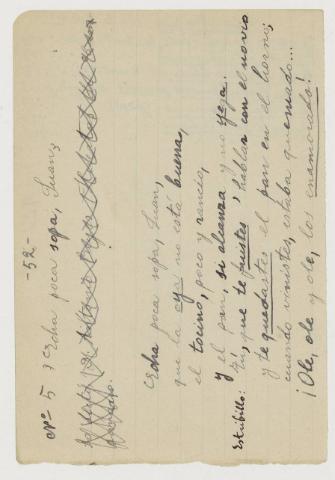 -52-
Nº 5, Echa poca sopa, Juan,
Echa poca sopa, Juan,
que la oya no está buena,
el tocino, poco y rancio,
y el pan, si alcanza y no yega.
Estribillo: Tú, que te fuistes, hablar con el novio
y te quedastes el pan en el horno;
cuando venistes, estaba quemado...
¡Ole, ole y ole, los enamorado!